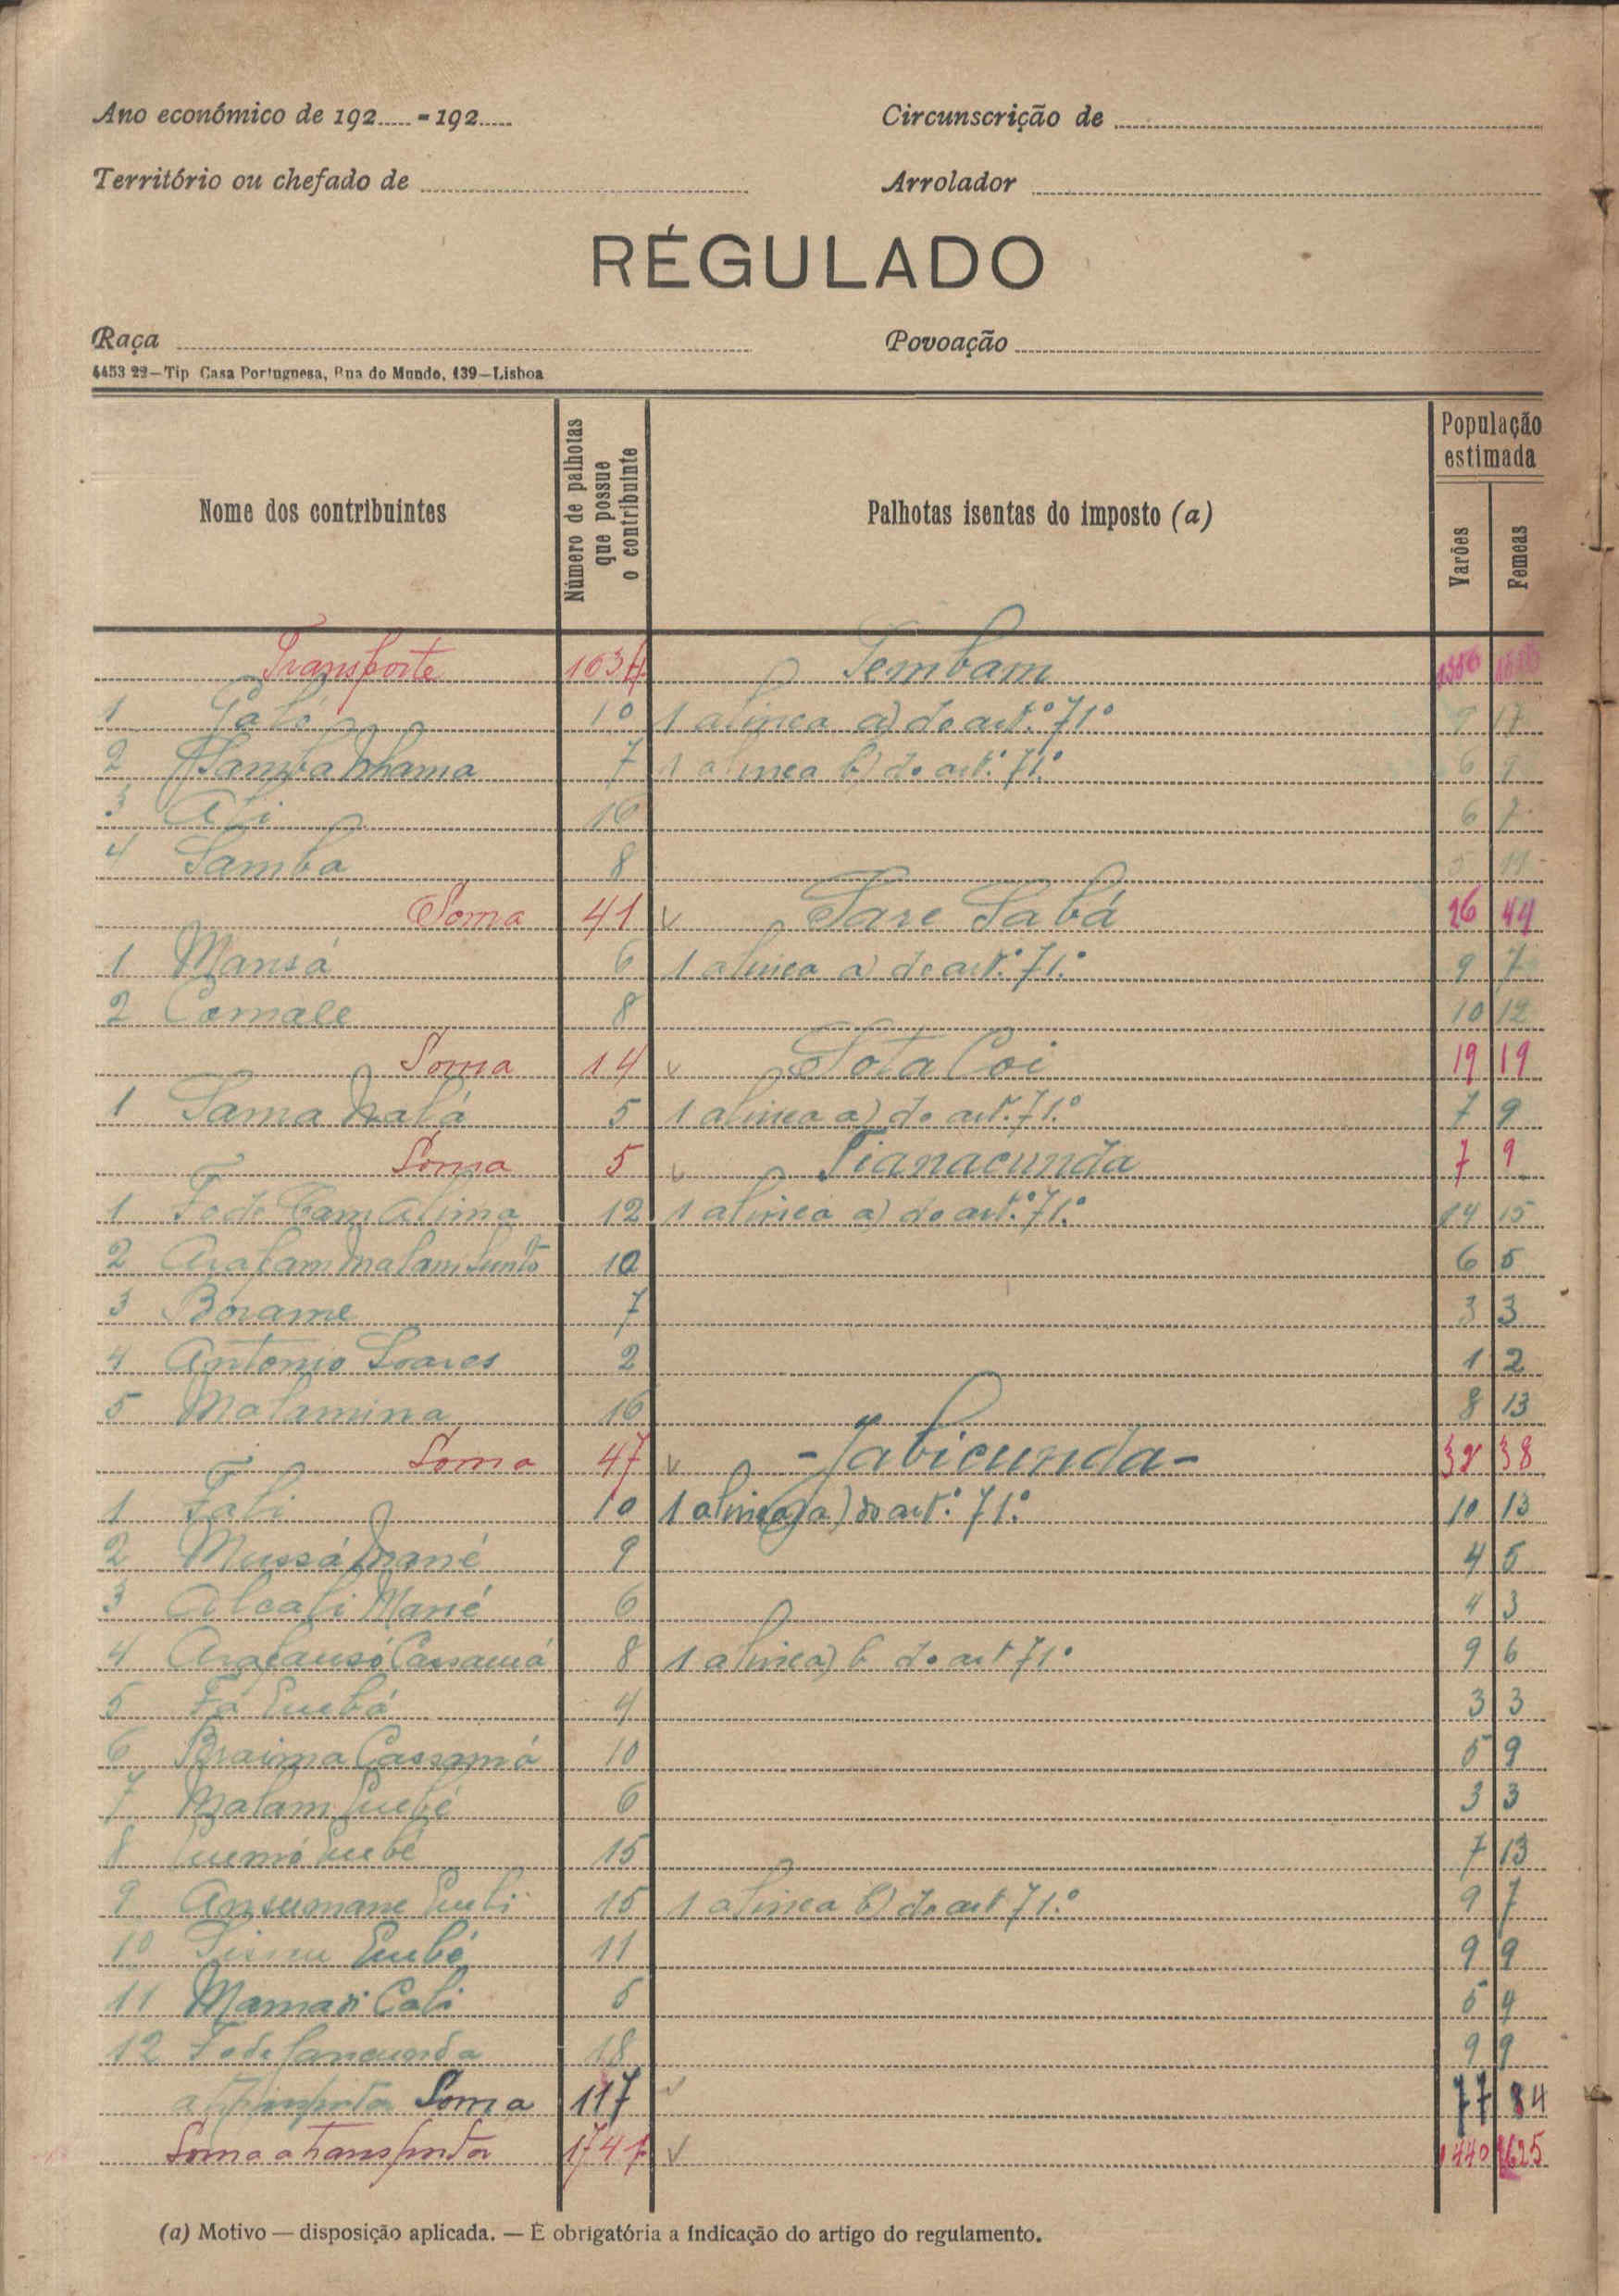 Ano económico de 192..... - 192.....
Circunscrição de
Território ou chefado de
Arrolador
RÉGULADO
Raça
Povoação
4453 22—Tip Casa Portuguesa, Rua do Mundo, 139—Lisboa
Nome dos contribuintes
Número de palhotas que possue o contribuinte
Palhotas isentas do imposto (a)
População estimada
Varões
Femeas
Transporte Sembam 1356
1 10 1 alinea a) do art.º 71.º 9 17
2 Samba 7 1 alinea b) do art.º 71.º 6 9
3 Ali 16 6 7
4 Samba 8 5 11
Soma 41 v Sare Sabá 26 44
1 Mansá 6 1 alinea a) do art.º 71.º 9 7
2 Comale 8 10 12
Soma 14 v Sota Coi 19 19
1 Sama 5 1 alinea a) do art. 71.º 7 9
Soma 5 v Tianacunda 7 9
1 Fode 12 1 alinea a) do art.º 71.º 14 15
2 10 6 5
3 Bórame 7 3 3
4 Antonio Soares 2 1 2
5 Malamina 16 8 13
Soma 47 v - Jabicunda - 32 38
1 Fali 10 1 alinea a) do art.º 71.º 10 13
2 Mussá Mané 9 4 5
3 Alcali Mané 6 4 3
4 8 1 alinea) b do art 71.º 9 6
5 Fá 4 3 3
6 Braima Cassamá 10 5 9
7 Malam 6 3 3
8 15 7 13
9 Ansumane 15 1 alinea b) do art 71.º 9 7
10 11 9 9
11 Mamadi Cali 5 5 4
12 Fode 18 9 9
Soma 117 v 77 84
Soma a transportar 1741 v 1440 1625
(a) Motivo — disposição aplicada. — É obrigatória a indicação do artigo do regulamento.